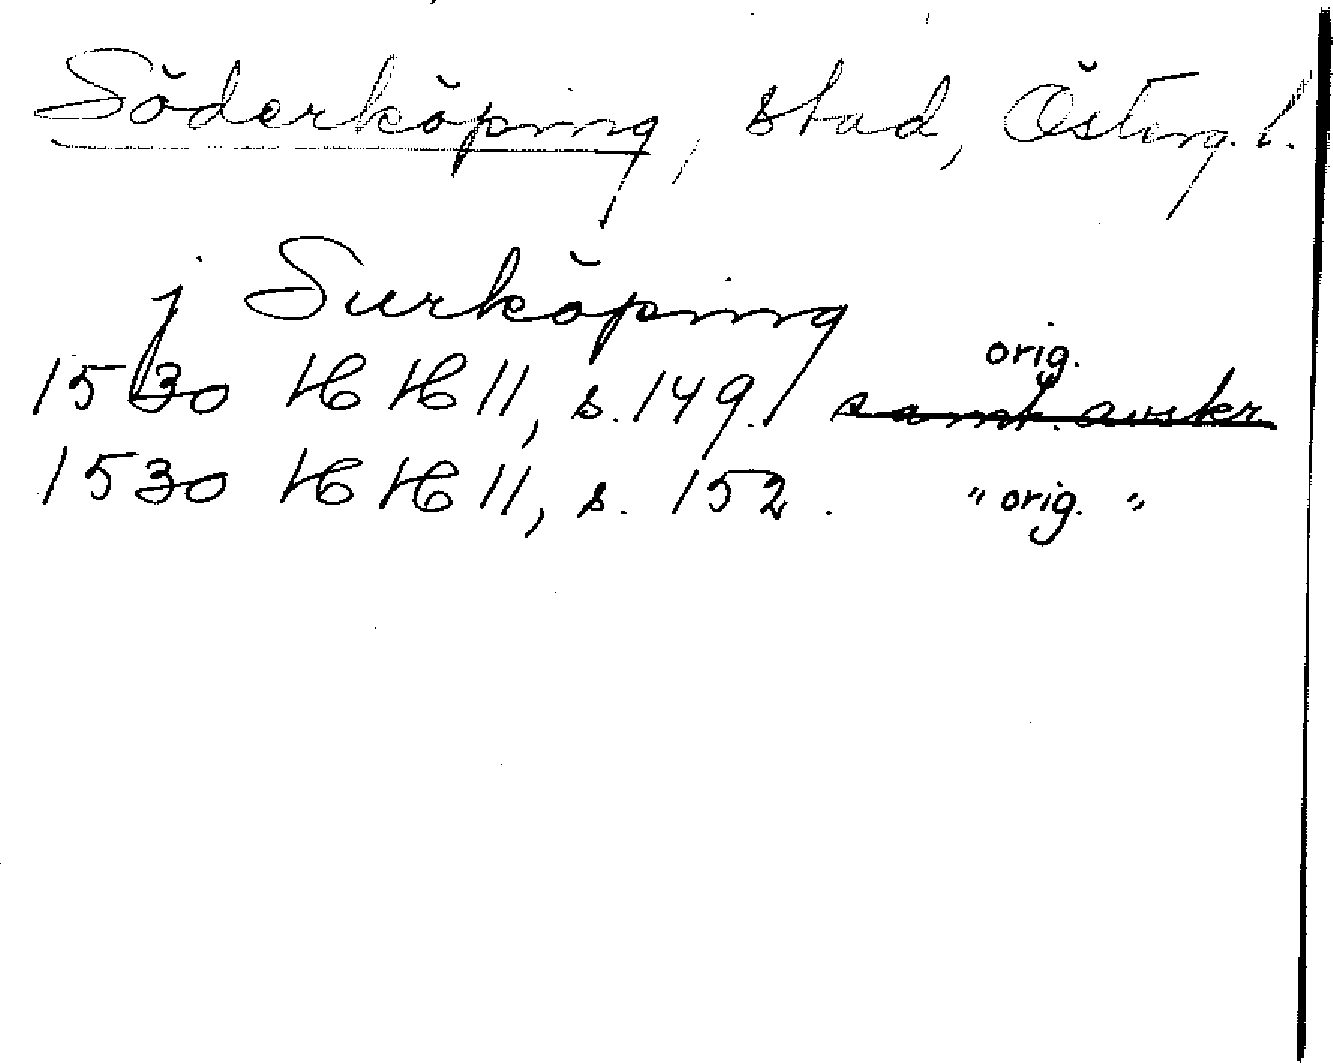 Söderköping, stad, Österg. l.
j Surköping
orig.
1530 HH 11, s. 149. samt. avskr
1530 HH 11, s. 152. " orig. "